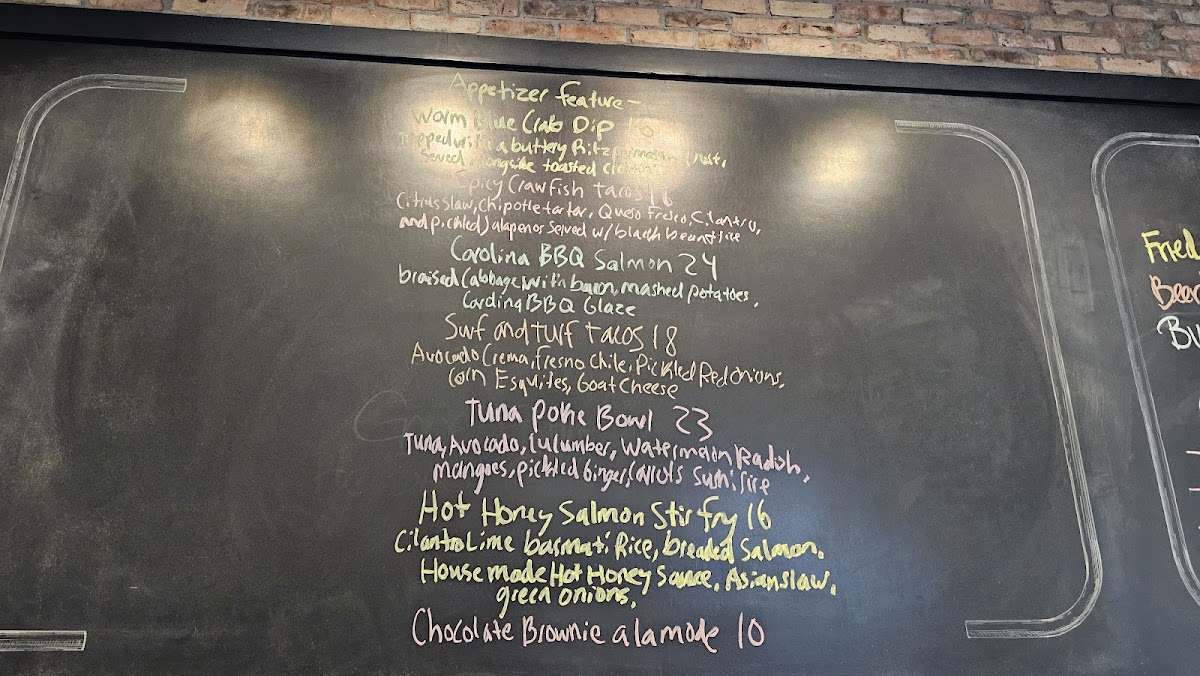 Appetizer feature -
Warm Blue Crab Dip
topped with a buttery Ritz
Served alongside toasted
Spicy Crawfish tacos 18
Citrus slaw, Chipotle tartar, Queso Fresco, Cilantro,
and pickled Jalapenos served w/ black beans + rice
Carolina BBQ Salmon 24
braised Cabbage with bacon, mashed potatoes,
Carolina BBQ Glaze
Surf and turf tacos 18
Avocado Crema, Fresno Chile, Pickled Red onions,
Corn Esquites, Goat Cheese
Tuna Poke Bowl 23
Tuna, Avocado, Cucumber, Watermelon Radish,
mangoes, pickled Ginger, Carrots Sushi rice
Hot Honey Salmon Stir fry 16
Cilantro Lime basmati Rice, breaded Salmon,
House made Hot Honey Sauce, Asian slaw,
green onions,
Chocolate Brownie alamode 10
Fried